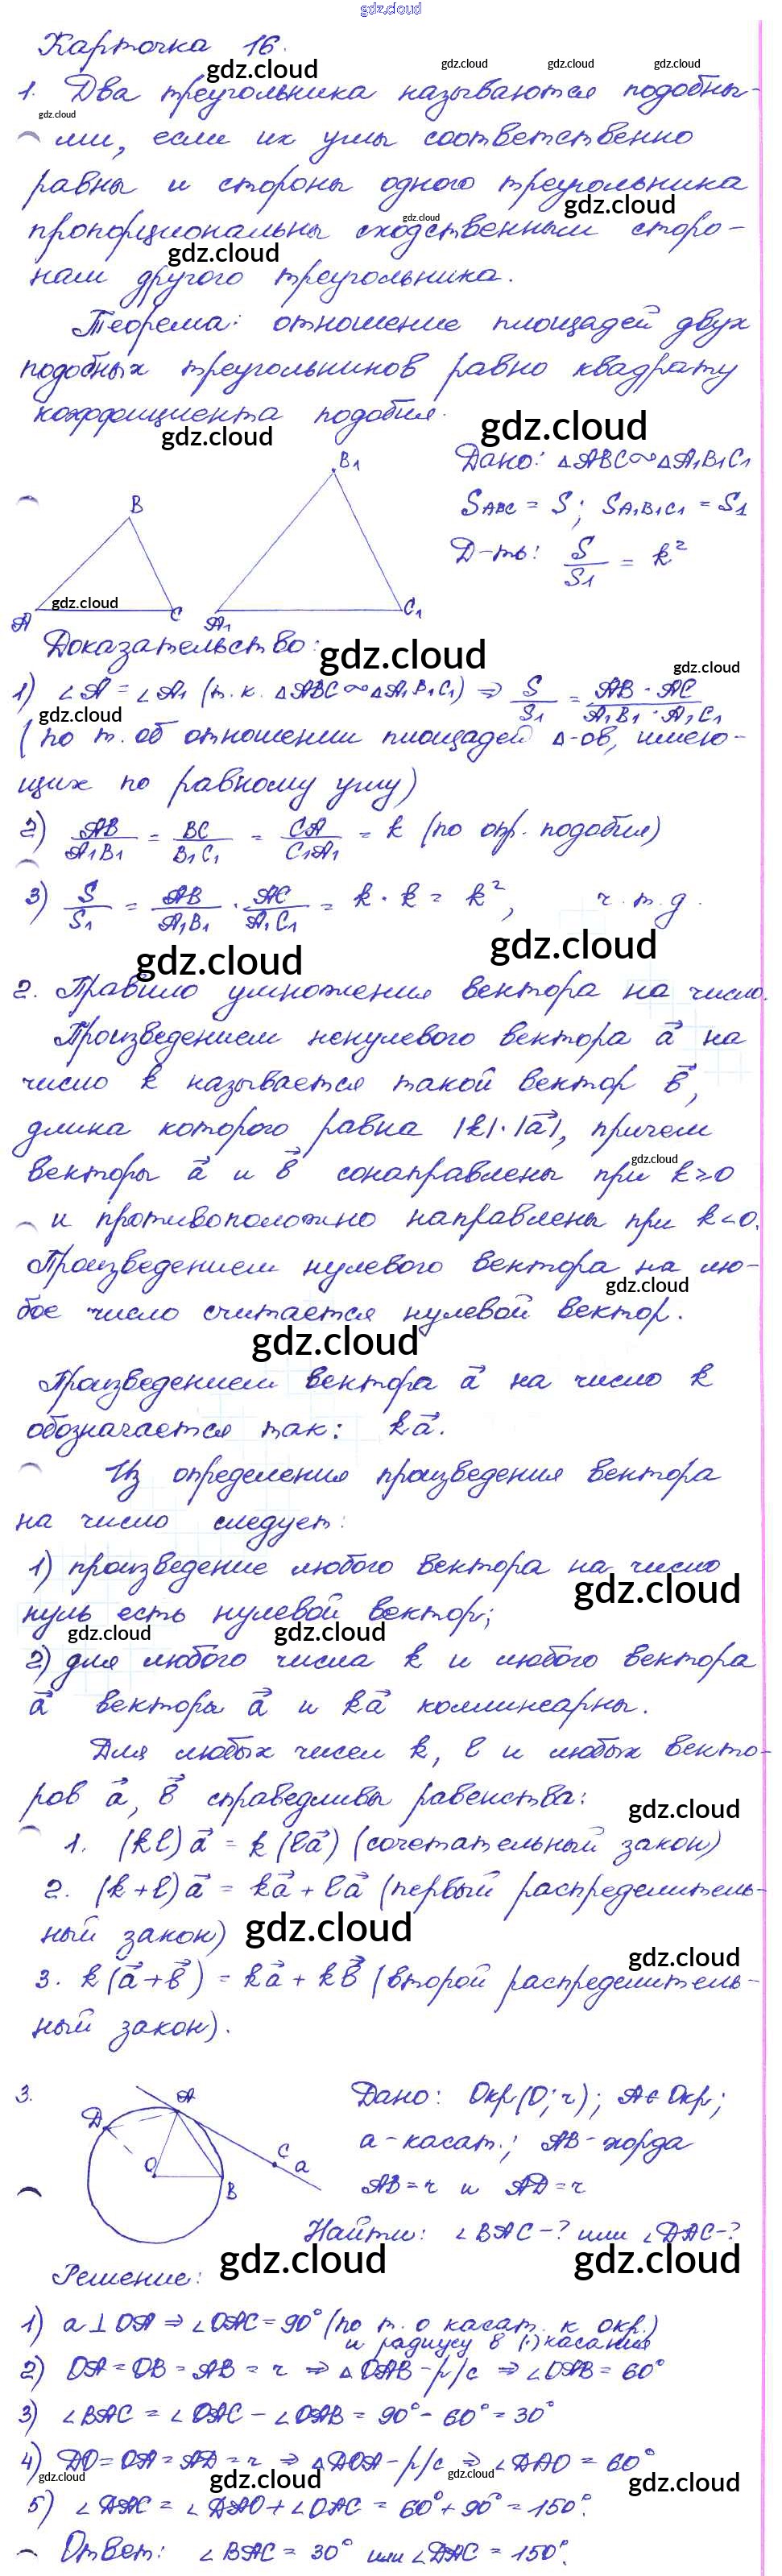 gdz.cloud
Карточка 16.
gdz.cloud gdz.cloud gdz.cloud gdz.cloud
1. Два треугольника называются подобны-
gdz.cloud
ми, если их углы соответственно
равны и стороны одного треугольника
gdz.cloud gdz.cloud
пропорциональны сходственным сторо-
gdz.cloud
нам другого треугольника.
Теорема: отношение площадей двух
подобных треугольников равно квадрату
коэффициента подобия.
gdz.cloud gdz.cloud
B B1 A C A1 C1
gdz.cloud
Дано: ΔABC∾ΔA1B1C1
SABC = S; SA1B1C1 = S1
Д-ть: S/S1 = k²
Доказательство:
gdz.cloud gdz.cloud
1) ∠A = ∠A1 (т.к. ΔABC∾ΔA1B1C1) ⇒ S/S1 = AB · AC / A1B1 · A1C1
gdz.cloud
(по т. об отношении площадей Δ-ов, имею-
щих по равному углу)
2) AB/A1B1 = BC/B1C1 = CA/C1A1 = k (по опр. подобия)
3) S/S1 = AB/A1B1 · AC/A1C1 = k · k = k², ч.т.д.
gdz.cloud gdz.cloud
2. Правило умножения вектора на число.
Произведением ненулевого вектора a⃗ на
число k называется такой вектор b⃗,
длина которого равна |k|·|a⃗|, причем
gdz.cloud
векторы a⃗ и b⃗ сонаправлены при k≥0
и противоположно направлены при k<0.
Произведением нулевого вектора на лю-
gdz.cloud
бое число считается нулевой вектор.
gdz.cloud
Произведением вектора a⃗ на число k
обозначается так: ka⃗.
Из определения произведения вектора
на число следует:
1) произведение любого вектора на число
gdz.cloud
нуль есть нулевой вектор;
gdz.cloud gdz.cloud
2) для любого числа k и любого вектора
a⃗ векторы a⃗ и ka⃗ коллинеарны.
Для любых чисел k, l и любых векто-
ров a⃗, b⃗ справедливы равенства:
gdz.cloud
1. (kl)a⃗ = k(la⃗) (сочетательный закон)
2. (k+l)a⃗ = ka⃗ + la⃗ (первый распределитель-
ный закон)
gdz.cloud gdz.cloud
3. k(a⃗+b⃗) = ka⃗ + kb⃗ (второй распределитель-
ный закон).
3.
A D O B C a
Дано: Окр(O; r); A∈Окр;
a-касат.; AB-хорда
AB=r и AD=r
Найти: ∠BAC-? или ∠DAC-?
gdz.cloud gdz.cloud
Решение:
1) a⊥OA ⇒ ∠OAC = 90° (по т. о касат. к окр.)
и радиусу в (·) касания
2) OA = OB = AB = r ⇒ ΔOAB - р/с ⇒ ∠OAB = 60°
3) ∠BAC = ∠OAC - ∠OAB = 90° - 60° = 30°
4) DO = OA = AD = r ⇒ ΔDOA - р/с ⇒ ∠DAO = 60°
gdz.cloud gdz.cloud gdz.cloud gdz.cloud
5) ∠DAC = ∠DAO + ∠OAC = 60° + 90° = 150°.
Ответ: ∠BAC = 30° или ∠DAC = 150°.